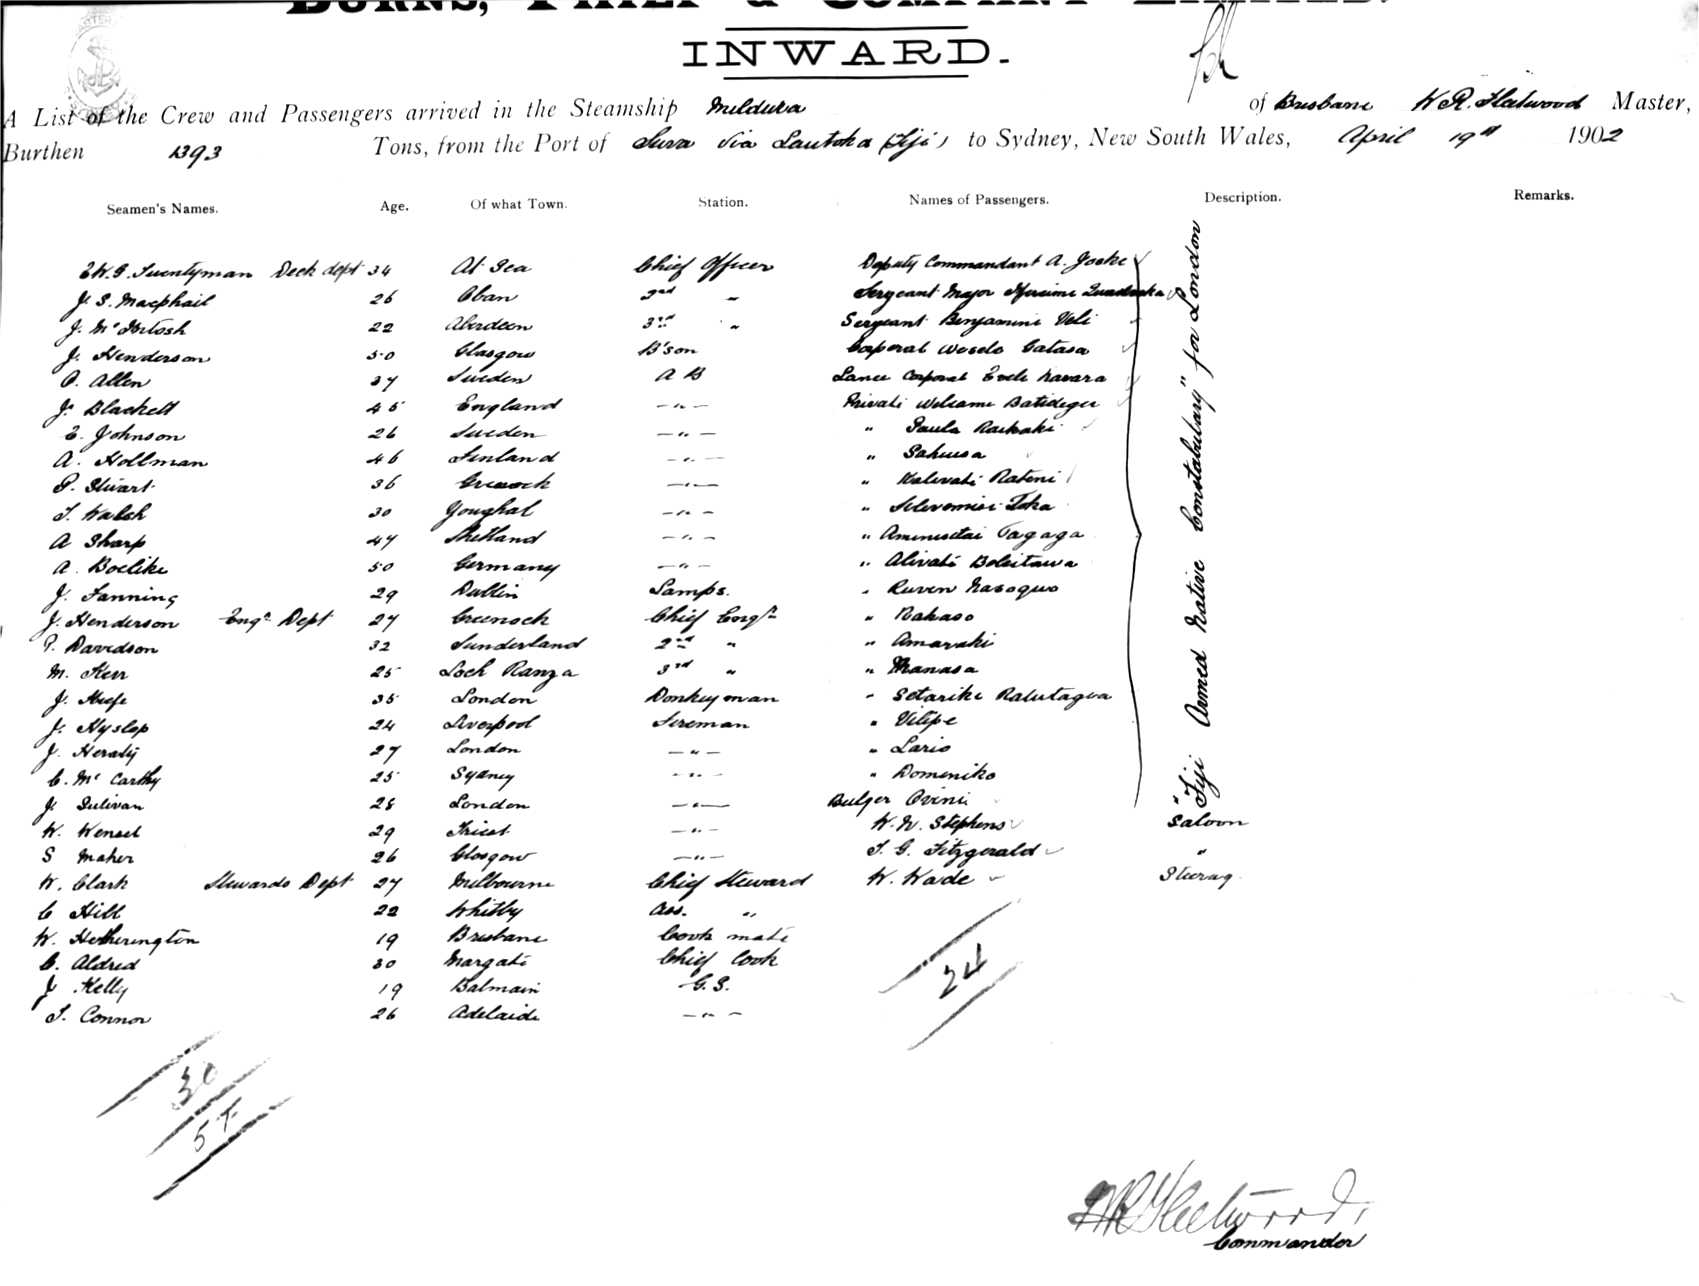 BURNS, PHILP & COMPANY LIMITED.
INWARD.
A List of the Crew and Passengers arrived in the Steamship Mildura of Brisbane W R. Fleetwood Master,
Burthen 1393 Tons, from the Port of Suva via Lautoka (Fiji) to Sydney, New South Wales, April 19th 1902
Seamen's Names. Age. Of what Town. Station. Names of Passengers. Description. Remarks.
E W. G. Twentyman Deck dept 34 At Sea Chief Officer Deputy Commandant A. Joske
J. S. Macphail 26 Oban 2nd " Sergeant Major
J. McIntosh 22 Aberdeen 3rd " Sergeant Benjamini Veli
J. Henderson 50 Glasgow B'son Corporal Wosele Gatasa
P. Allen 37 Sweden A B Lance Corporal Navara
J. Blackett 45 England —"— Private Welsame
E. Johnson 26 Sweden —"— " Paula
A. Hollman 46 Finland —"— " Sakiusa
P. Stuart 36 Greenock —"— " Ratini
T. Walsh 30 Youghal —"— " Toka
A Sharp 47 Shetland —"— " Tagaga
A. Boelike 50 Germany —"— " Alivati
J. Fanning 29 Dublin Lamps. " Ruven Nasoquo
J. Henderson Engr. Dept 27 Greenock Chief Engr " Nakaso
P. Davidson 32 Sunderland 2nd " " Amaraki
M. Kerr 25 Loch Ranza 3rd " " Manasa
J. Keefe 35 London Donkeyman " Setariki Ralutagua
J. Hyslop 24 Liverpool Fireman " Vitipe
J. Heraty 27 London —"— " Lario
C. McCarthy 25 Sydney —"— " Dominiko
J. Sulivan 28 London —"— Bulger Ovini
"Fiji Armed Native Constabulary" for London
W. Wensel 29 Triest —"— W. W. Stephens Saloon
S Maher 26 Glasgow —"— T. G. Fitzgerald "
W. Clark Stewards Dept 27 Melbourne Chief Steward W. Wade Steerag
C Hill 22 Whitby Ass. "
W. Hetherington 19 Brisbane Cook mate
C. Aldred 30 Margate Chief Cook
J Kelly 19 Balmain G. S.
T. Connor 26 Adelaide —"—
24
30
54
W R Fleetwood.
Commander